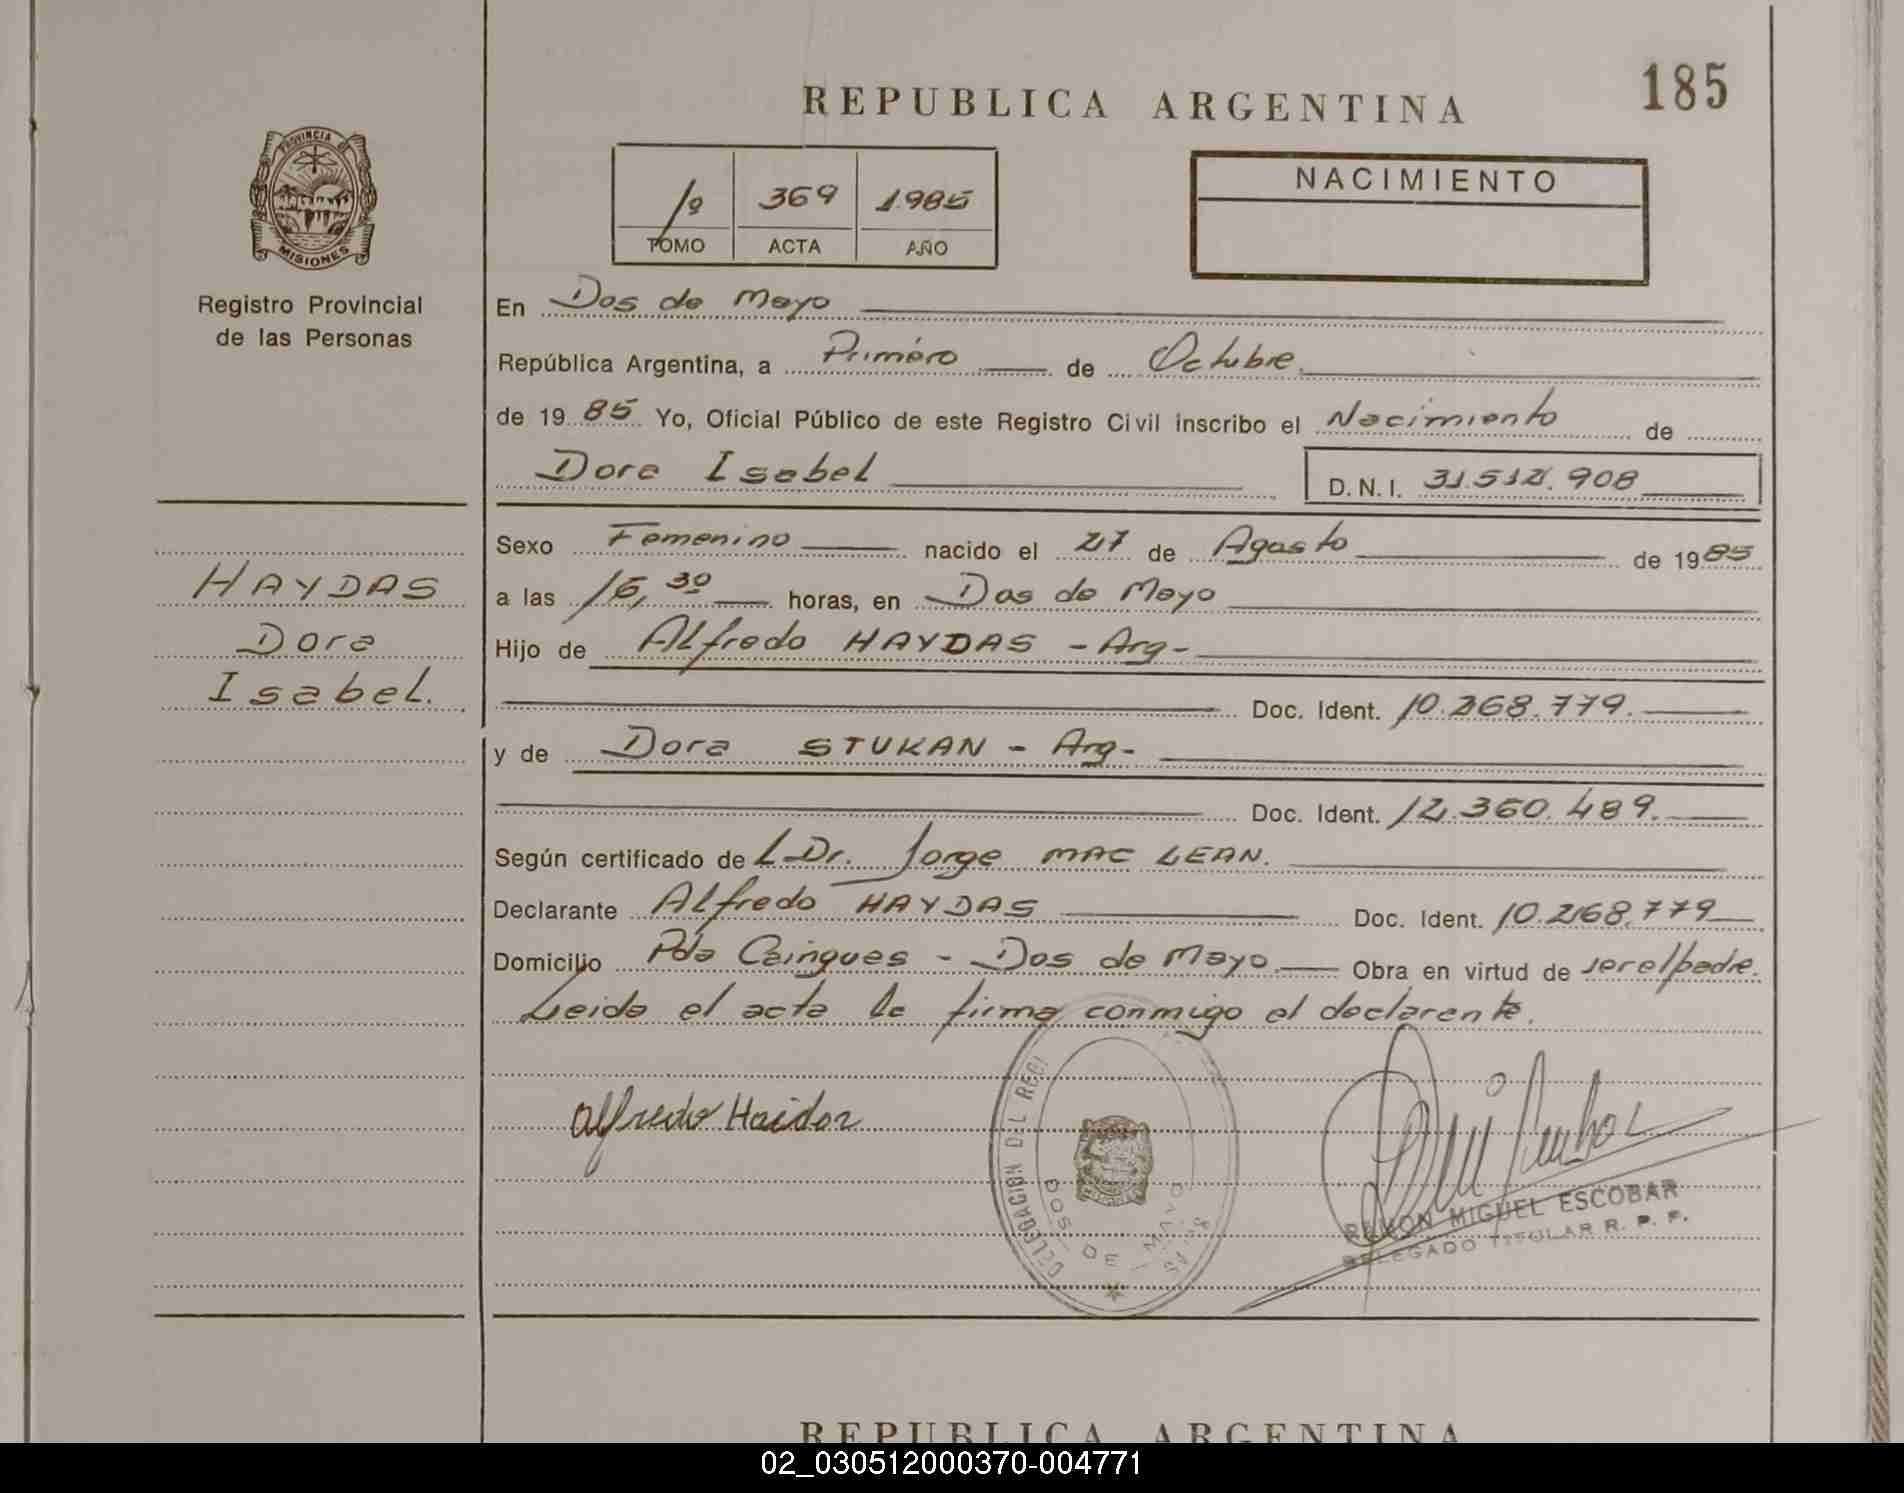 185
REPUBLICA ARGENTINA
PROVINCIA D
MISIONES
1º 369 1985
TOMO ACTA AÑO
NACIMIENTO
Registro Provincial
de las Personas
En Dos de Mayo
República Argentina, a Primero de Octubre
de 1985 Yo, Oficial Público de este Registro Civil inscribo el Nacimiento de
Dora Isabel D.N.I. 31.512.908
HAYDAS
Dora
Isabel.
Sexo Femenino nacido el 27 de Agosto de 1985
a las 16,30 horas, en Dos de Mayo
Hijo de Alfredo HAYDAS - Arg-
Doc. Ident. 10.268.779.
y de Dora STUKAN - Arg-
Doc. Ident. 12.360.489.
Según certificado de L Dr. Jorge MAC LEAN.
Declarante Alfredo HAYDAS Doc. Ident. 10.268.779
Domicilio Pda Caingues - Dos de Mayo Obra en virtud de ser el padre.
Leida el acta la firma conmigo el declarente.
Alfredo Haidar
DELEGACION DEL REGI
DOS DE MAYO
RAMON MIGUEL ESCOBAR
DELEGADO TITULAR R. P. P.
REPUBLICA ARGENTINA
02_030512000370-004771